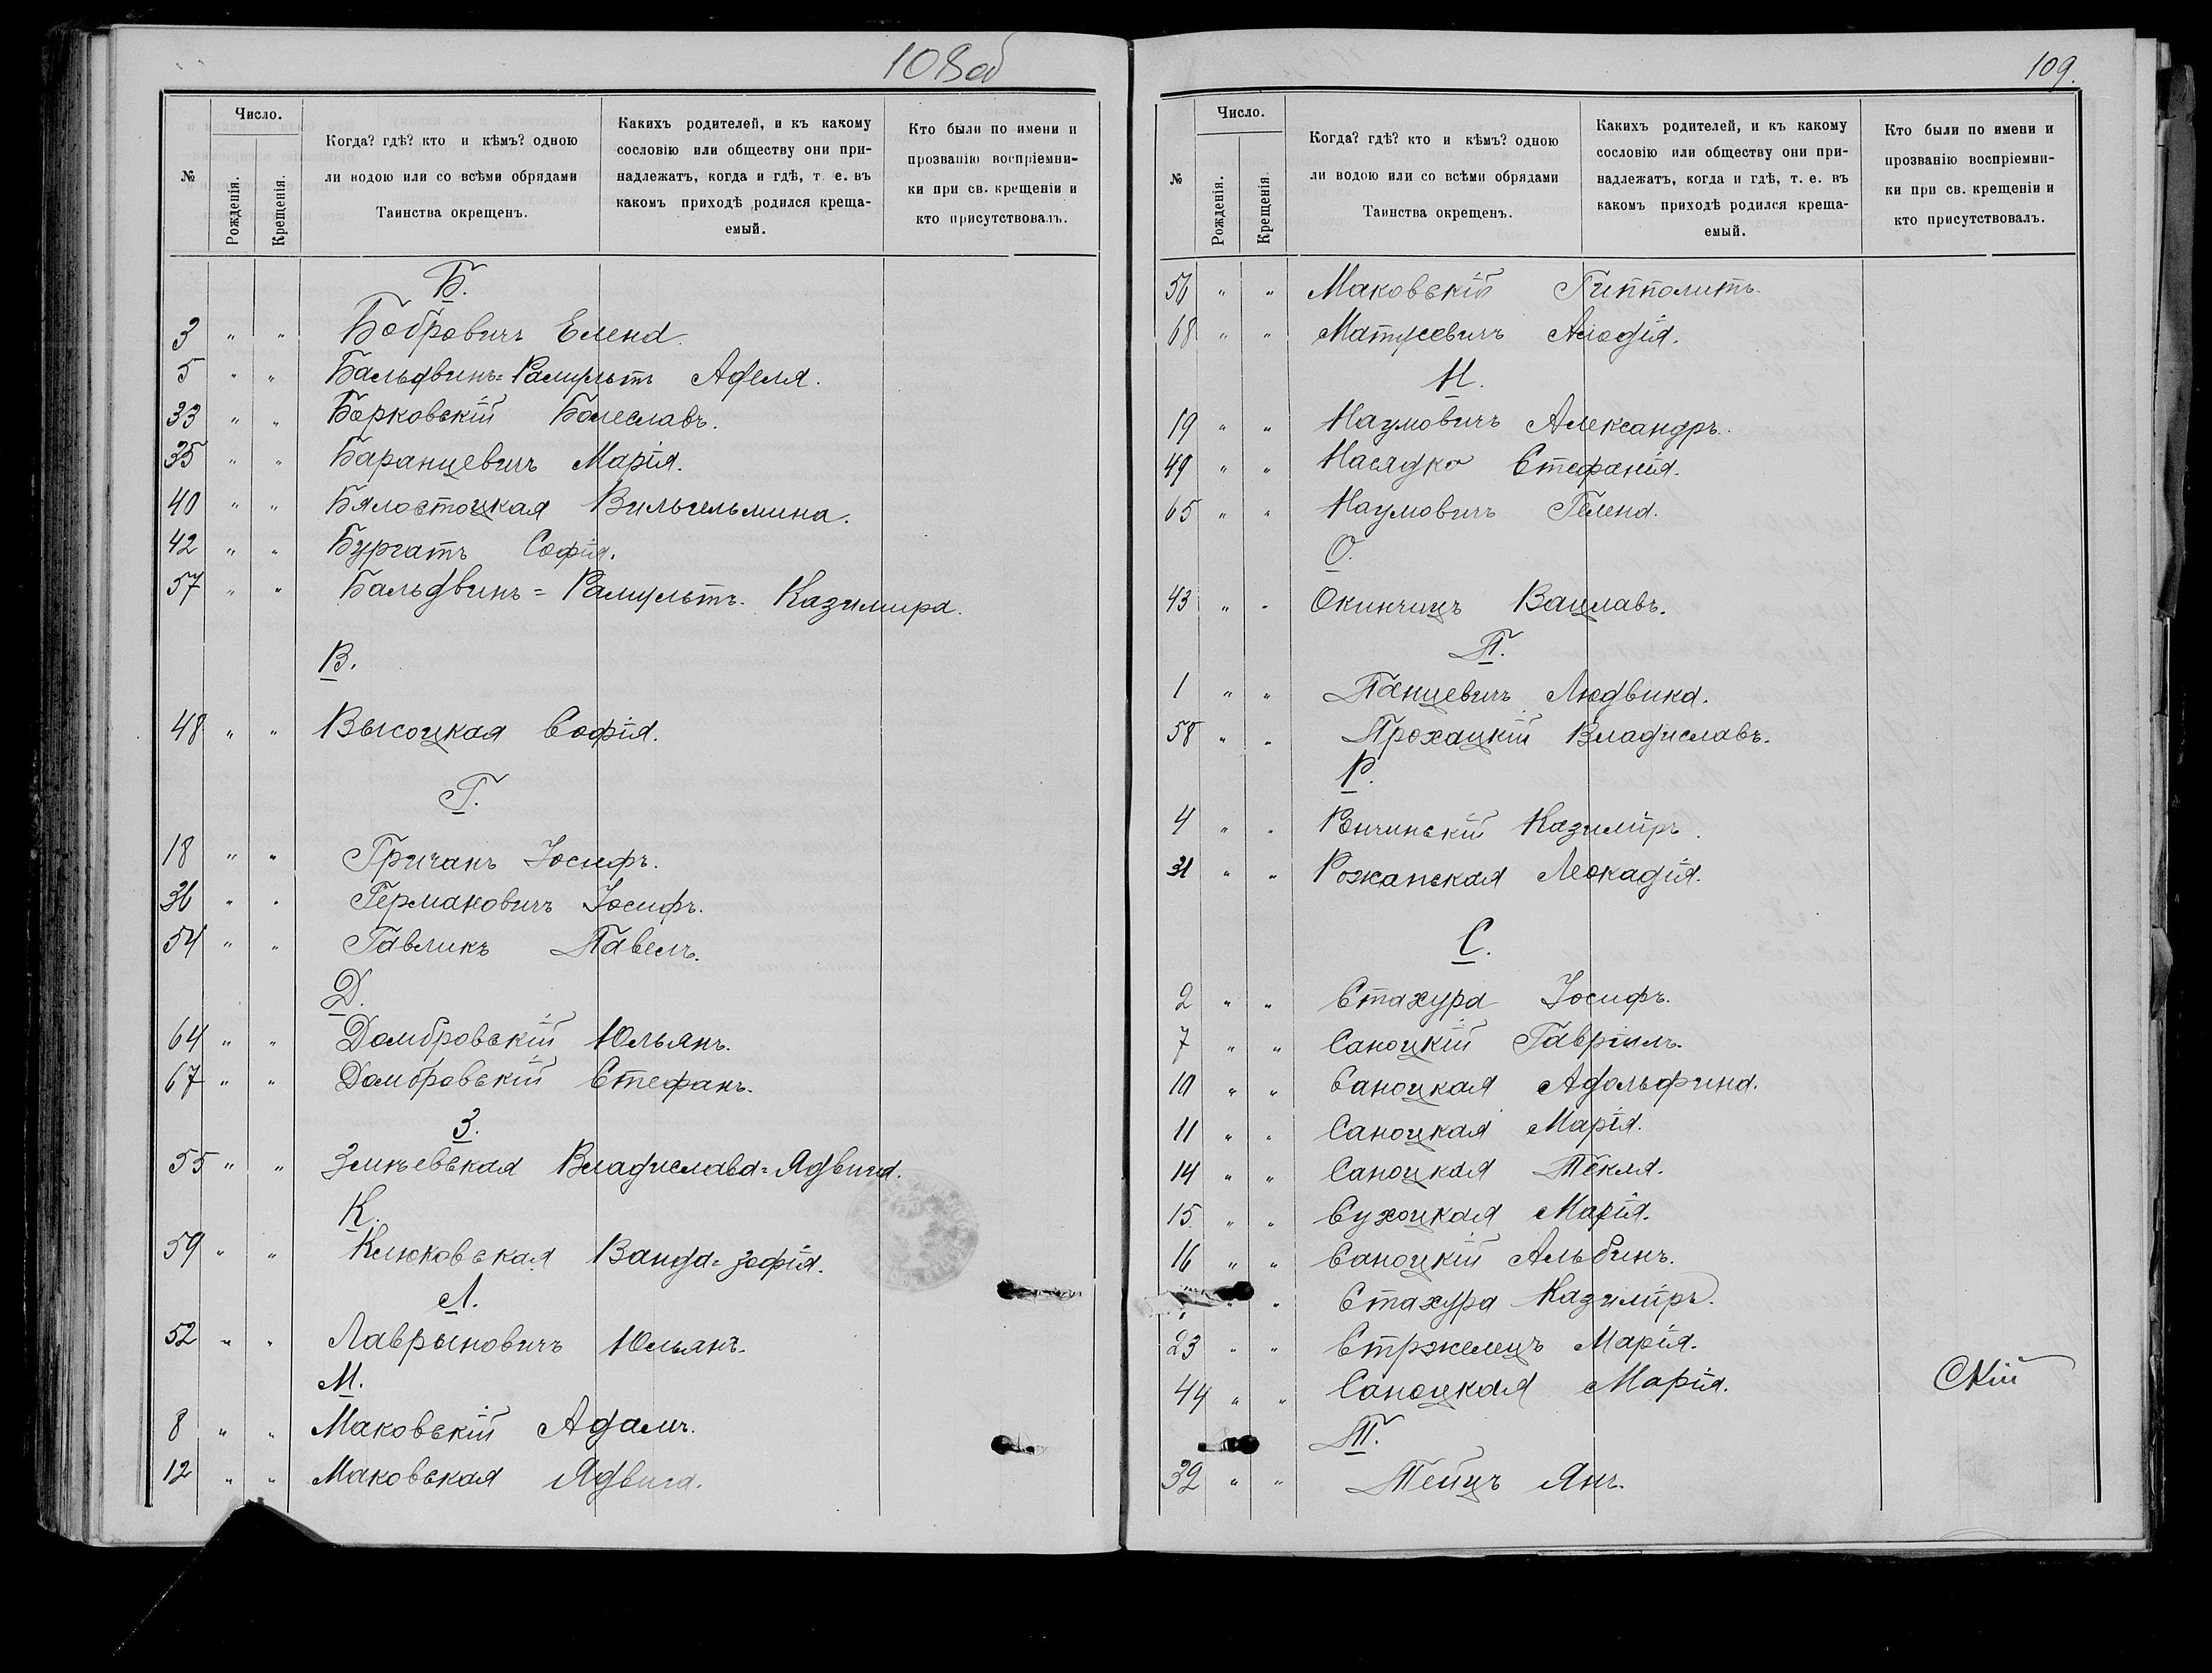 108об
№
Число.
Рожденія.
Крещенія.
Когда? гдѣ? кто и кѣмъ? одною
ли водою или со всѣми обрядами
Таинства окрещенъ.
Какихъ родителей, и къ какому
сословію или обществу они при-
надлежатъ, когда и гдѣ, т. е. въ
какомъ приходѣ родился креща-
емый.
Кто были по имени и
прозванію воспріемни-
ки при св. крещеніи и
кто присутствовалъ.
Б.
3 " " Бобровичъ Елена.
5 " " Бальдвинъ=Рамультъ Аделя.
33 " " Борковскій Болеславъ.
35 " " Баранцевичъ Марія.
40 " " Бялостоцкая Вильгельмина.
42 " " Бургатъ Софія.
57 " " Бальдвинъ=Рамультъ. Казимира.
В.
48 " " Высоцкая Софія.
Г.
18 " " Гричанъ Іосифъ.
36 " " Германовичъ Іосифъ.
54 " " Гавликъ Павелъ.
Д.
64 " " Домбровскій Юльянъ.
67 " " Домбровскій Стефанъ.
З.
55 " " Змѣевская Владислава=Ядвига.
К.
59 " " Клюковская Ванда=Зофія.
Л.
52 " " Лаврыновичъ Юльянъ.
М.
8 " " Маковскій Адамъ.
12 " " Маковская Ядвига.
109.
№
Число.
Рожденія.
Крещенія.
Когда? гдѣ? кто и кѣмъ? одною
ли водою или со всѣми обрядами
Таинства окрещенъ.
Какихъ родителей, и къ какому
сословію или обществу они при-
надлежатъ, когда и гдѣ, т. е. въ
какомъ приходѣ родился креща-
емый.
Кто были по имени и
прозванію воспріемни-
ки при св. крещеніи и
кто присутствовалъ.
56 " " Маковскій Гипполитъ.
68 " " Матусевичъ
Н.
19 " " Наумовичъ Александръ.
49 " " Насядко Стефанія.
65 " " Наумовичъ Гелена.
О.
43 " " Окинчицъ Вацлавъ.
П.
1 " " Панцевичъ Людвика.
58 " " Прохацкій Владиславъ.
Р.
4 " " Рончинскій Казиміръ.
31 " " Рожанская Леокадія.
С.
2 " " Стахура Іосифъ.
7 " " Саноцкій Гавріилъ.
10 " " Саноцкая Адольфина.
11 " " Саноцкая Марія.
14 " " Саноцкая Текля.
15 " " Сухоцкая Марія.
16 " " Саноцкій Альбинъ.
" " Стахура Казиміръ.
23 " " Стржелецъ Марія.
44 " " Саноцкая Марія. Скій
Т.
39 " " Тейцъ Янъ.